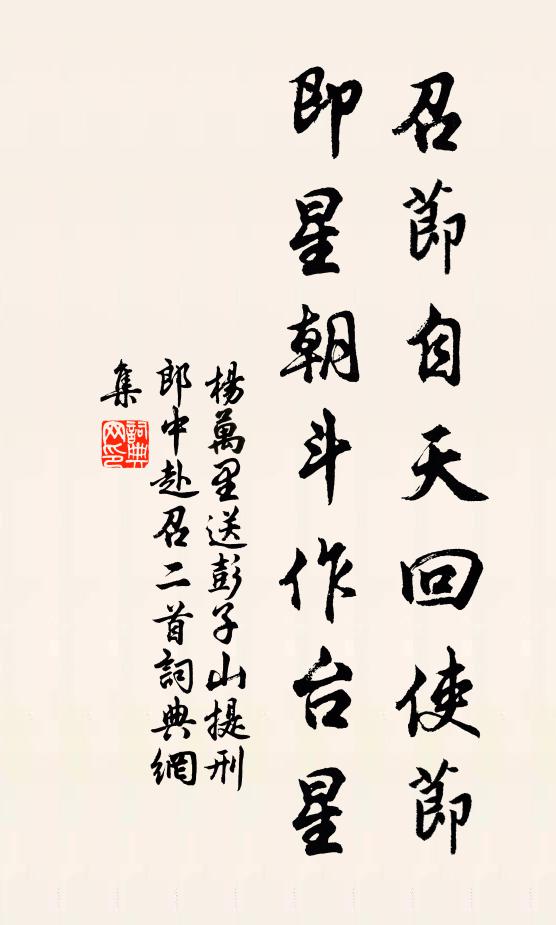 召節自天回使節
即星朝斗作台星
楊萬里送彭子山提刑
郎中赴召二首詞典網
集
詞典網印